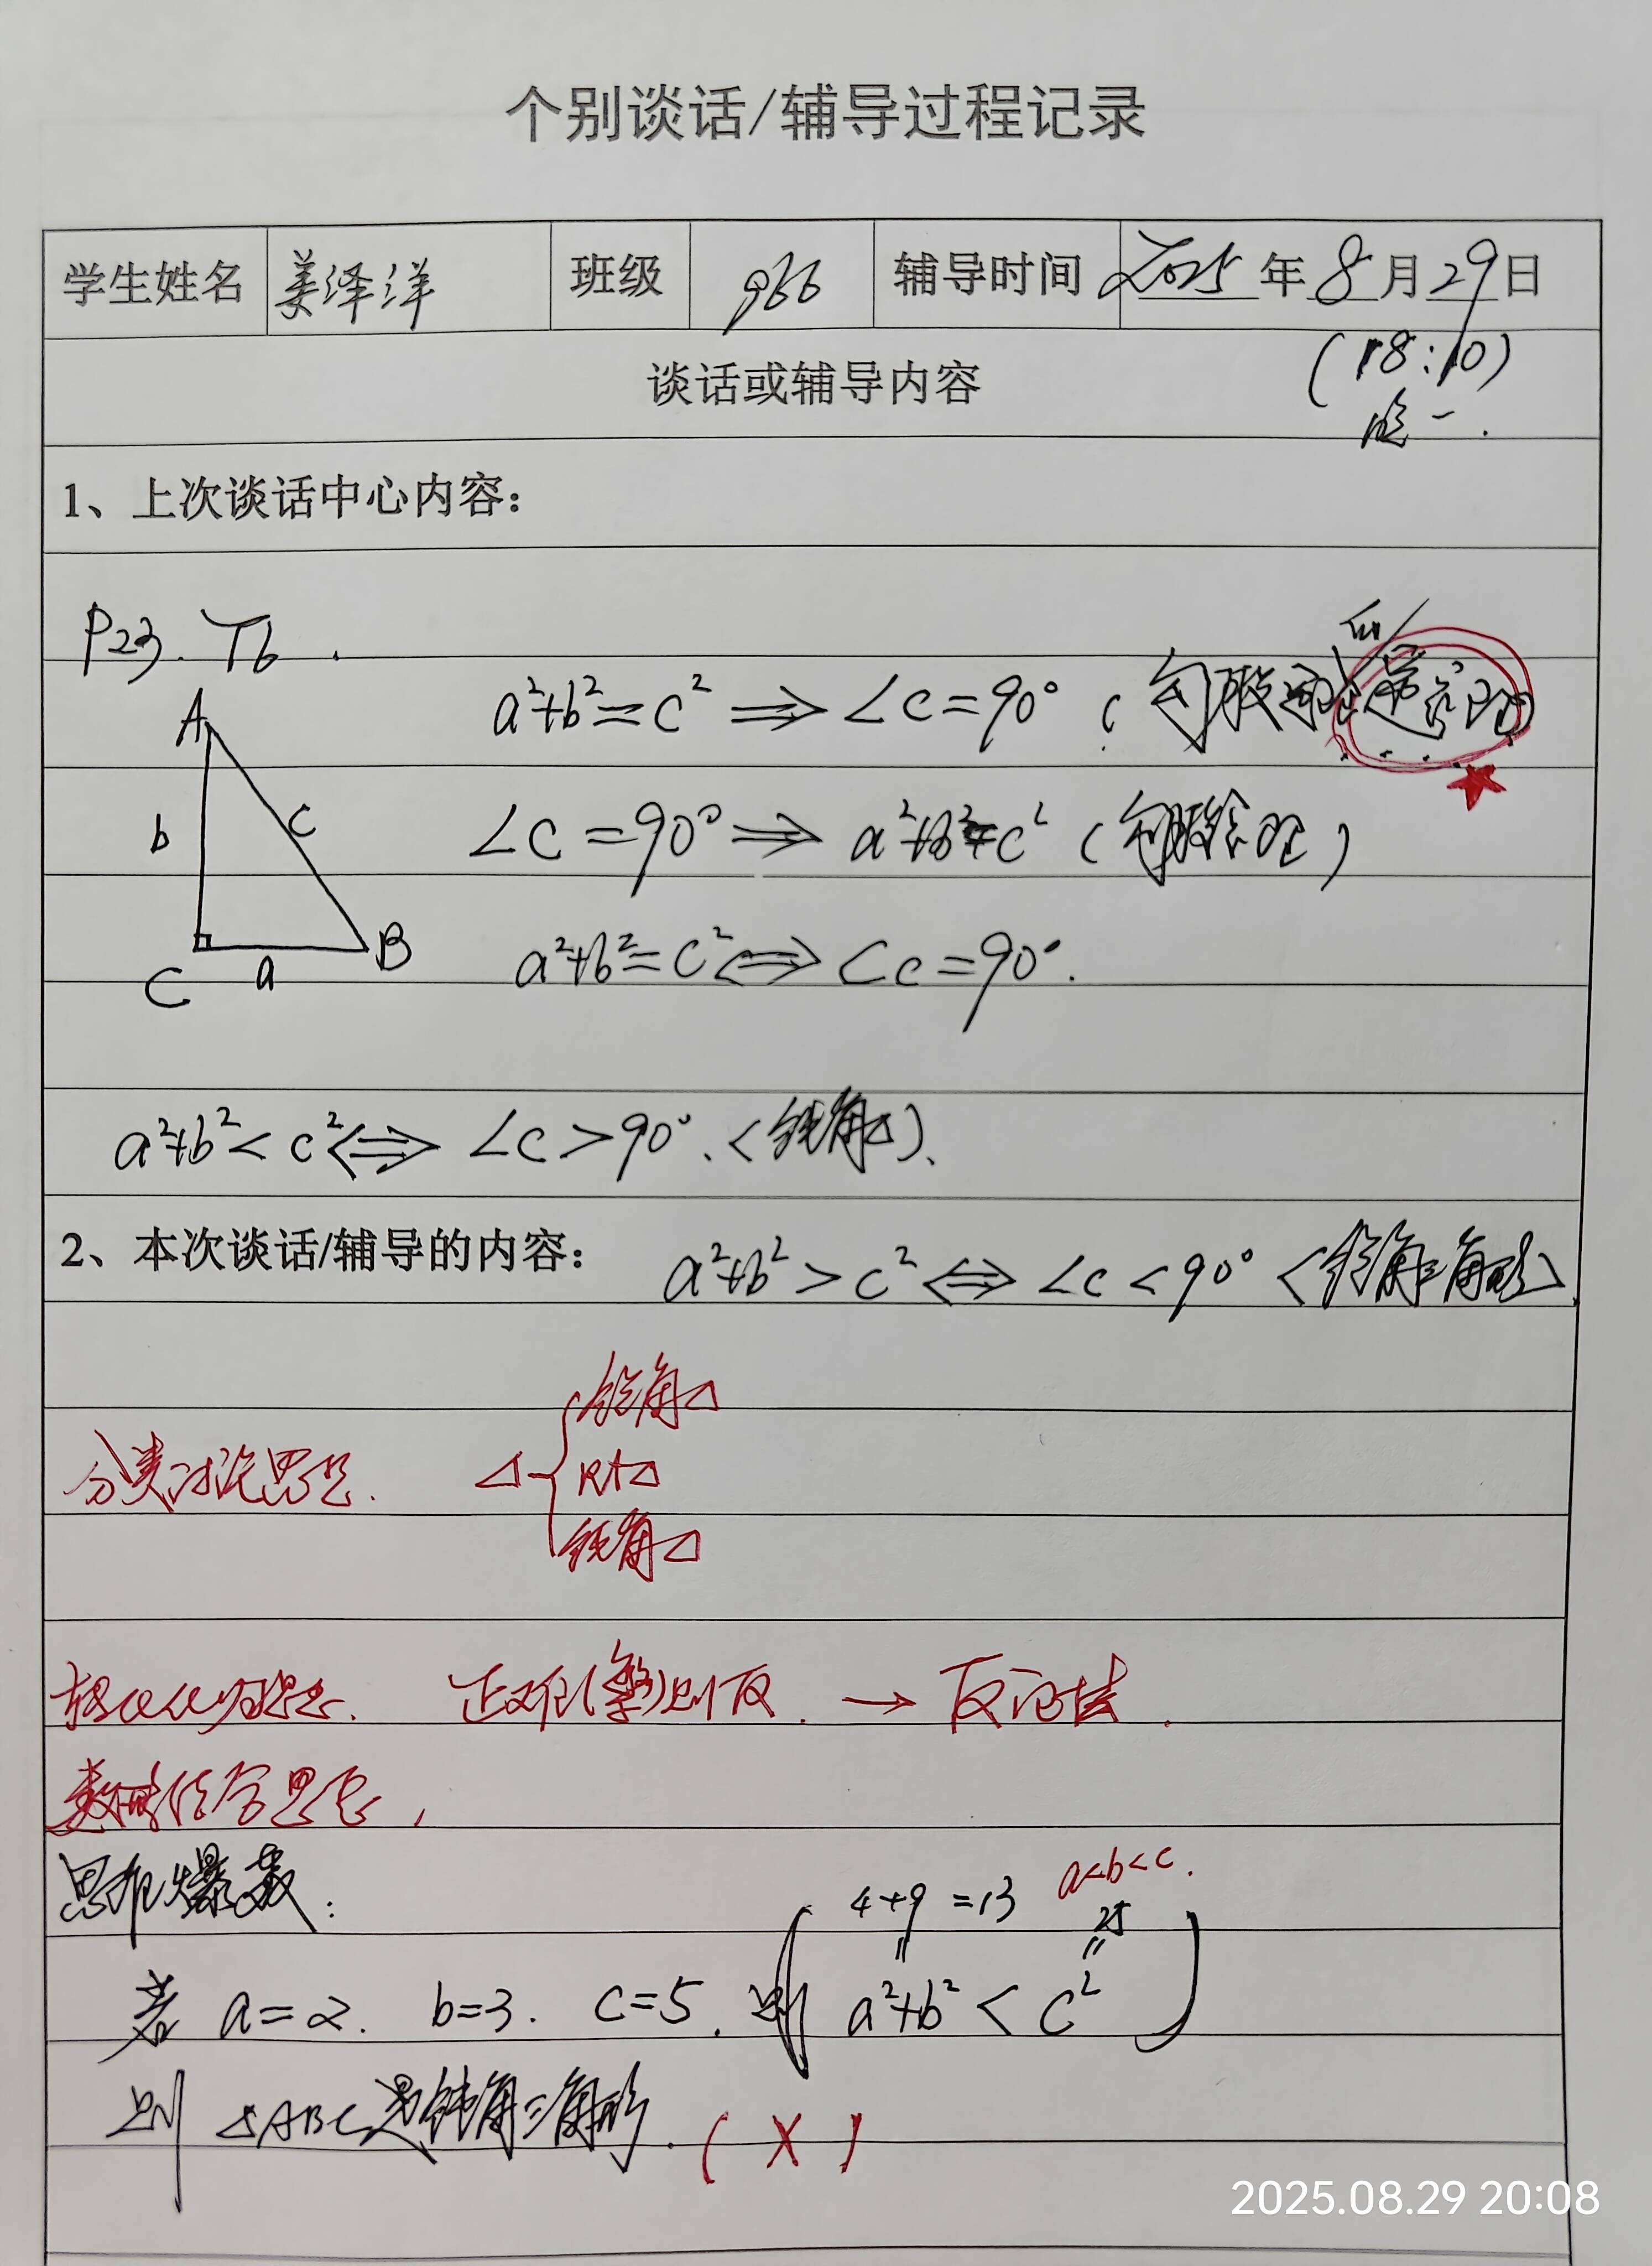 个别谈话/辅导过程记录
学生姓名 姜泽洋 班级 966 辅导时间 2025年8月29日
(18:10)
晚一.
谈话或辅导内容
1、上次谈话中心内容:
P23. T6.
A
b
c
C
a
B
a²+b²=c² ⟹ ∠C=90° (勾股定理逆定理)
∠C=90° ⟹ a²+b²=c² (勾股定理)
a²+b²=c² ⟺ ∠C=90°.
a²+b²<c² ⟺ ∠C>90°. (钝角△).
2、本次谈话/辅导的内容: a²+b²>c² ⟺ ∠C<90° (锐角三角形).
锐角△
分类讨论思想. △ Rt△
钝角△
转化化归思想. 正难(繁)则反. → 反证法.
数形结合思想,
思维爆裂:
4+9=13 a<b<c.
= 25 =
若 a=2. b=3. c=5. 则 (a²+b²<c²)
则 △ABC是钝角三角形. (×)
2025.08.29 20:08